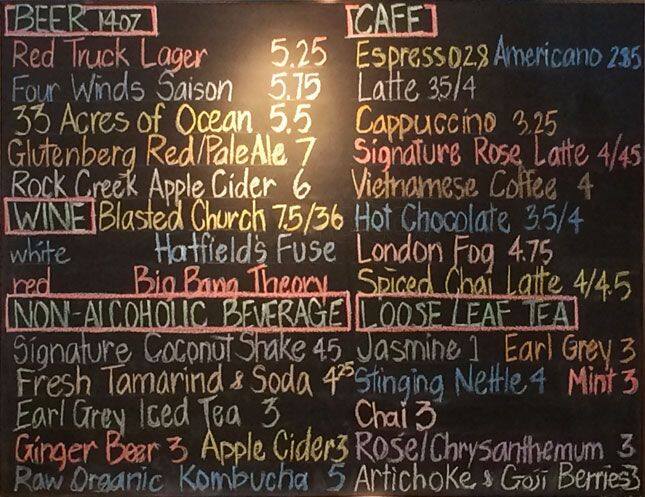 BEER 14oz
Red Truck Lager 5.25
Four Winds Saison 5.75
33 Acres of Ocean 5.5
Glutenberg Red/Pale Ale 7
Rock Creek Apple Cider 6
WINE Blasted Church 7.5/36
white Hatfield's Fuse
red Big Bang Theory
NON-ALCOHOLIC BEVERAGE
Signature Coconut Shake 45
Fresh Tamarind & Soda 4.25
Earl Grey Iced Tea 3
Ginger Beer 3 Apple Cider 3
Raw Organic Kombucha 5
CAFE
Espresso 2.8 Americano 2.85
Latte 3.5/4
Cappuccino 3.25
Signature Rose Latte 4/4.5
Vietnamese Coffee 4
Hot Chocolate 3.5/4
London Fog 4.75
Spiced Chai Latte 4/4.5
LOOSE LEAF TEA
Jasmine 1 Earl Grey 3
Stinging Nettle 4 Mint 3
Chai 3
Rose/Chrysanthemum 3
Artichoke & Goji Berries 3